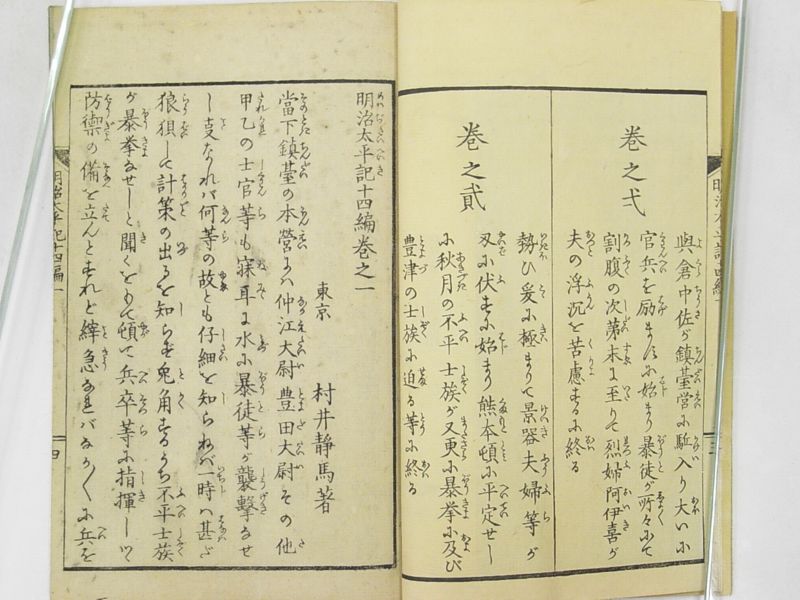 與倉中佐が鎮臺營に駈入り大いに
官兵を励ますに始まり暴徒が所々にて
割腹の次第末に至りて烈婦阿伊喜が
夫の浮沉を苦慮するに終る
卷之弍
卷之貳
勢ひ爰に極まりて景器夫婦等が
刄に伏するに始まり熊本頓に平定せし
に秋月の不平士族が又更に暴挙に及び
豊津の士族に迫る等に終る
明治太平記十四編巻之一
東京 村井静馬著
當下鎮臺の本營には仲江大尉豊田大尉その他
甲乙の士官等も寐耳に水に暴徒等が襲撃なせ
し事なれバ何等の故とも仔細を知らねバ一時ハ甚だ
狼狽して計策の出るを知らず兎角するうち不平士族
が暴挙なせしと聞くをもて頓て兵卒等に指揮しつゝ
防禦の備を立んとすれど緯急なれバなか〳〵に兵を
明治太平記十四編一
四